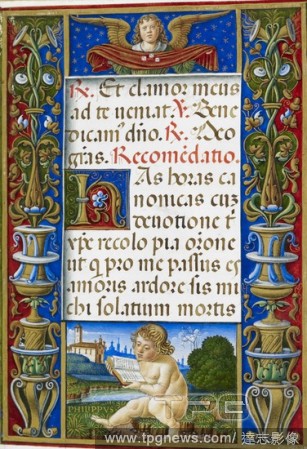 R. Et clamor meus
ad te veniat. V. Bene
dicam⁹ dño. R. Deo
gr̃as. Recomẽdatio.
HAs horas ca
nonicas cuʒ
deuotione t̃
xp̃e recolo pia or̃one
ut q̃ pro me passus es
amoris ardore sis mi
chi solatium mortis
PHILIPPVS
TPG
www.tpgnews.com/達志影像